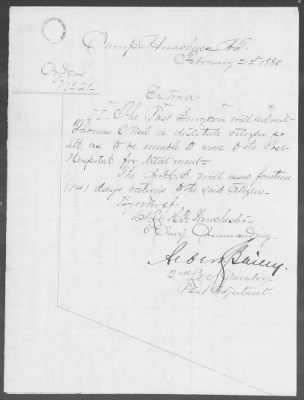 Camp Huachuca A.T.
February 21st 1880
Orders
No 22
Extract
II. The Post Surgeon will admit
Thomas O'Neil a destitute citizen so
ill as to be unable to move to the Post
Hospital for treatment.
The A.A.C.S. will issue fourteen
(14) days rations to the said citizen.
By order of
Commanding.
2nd Lt 6th Cavalry
Post Adjutant